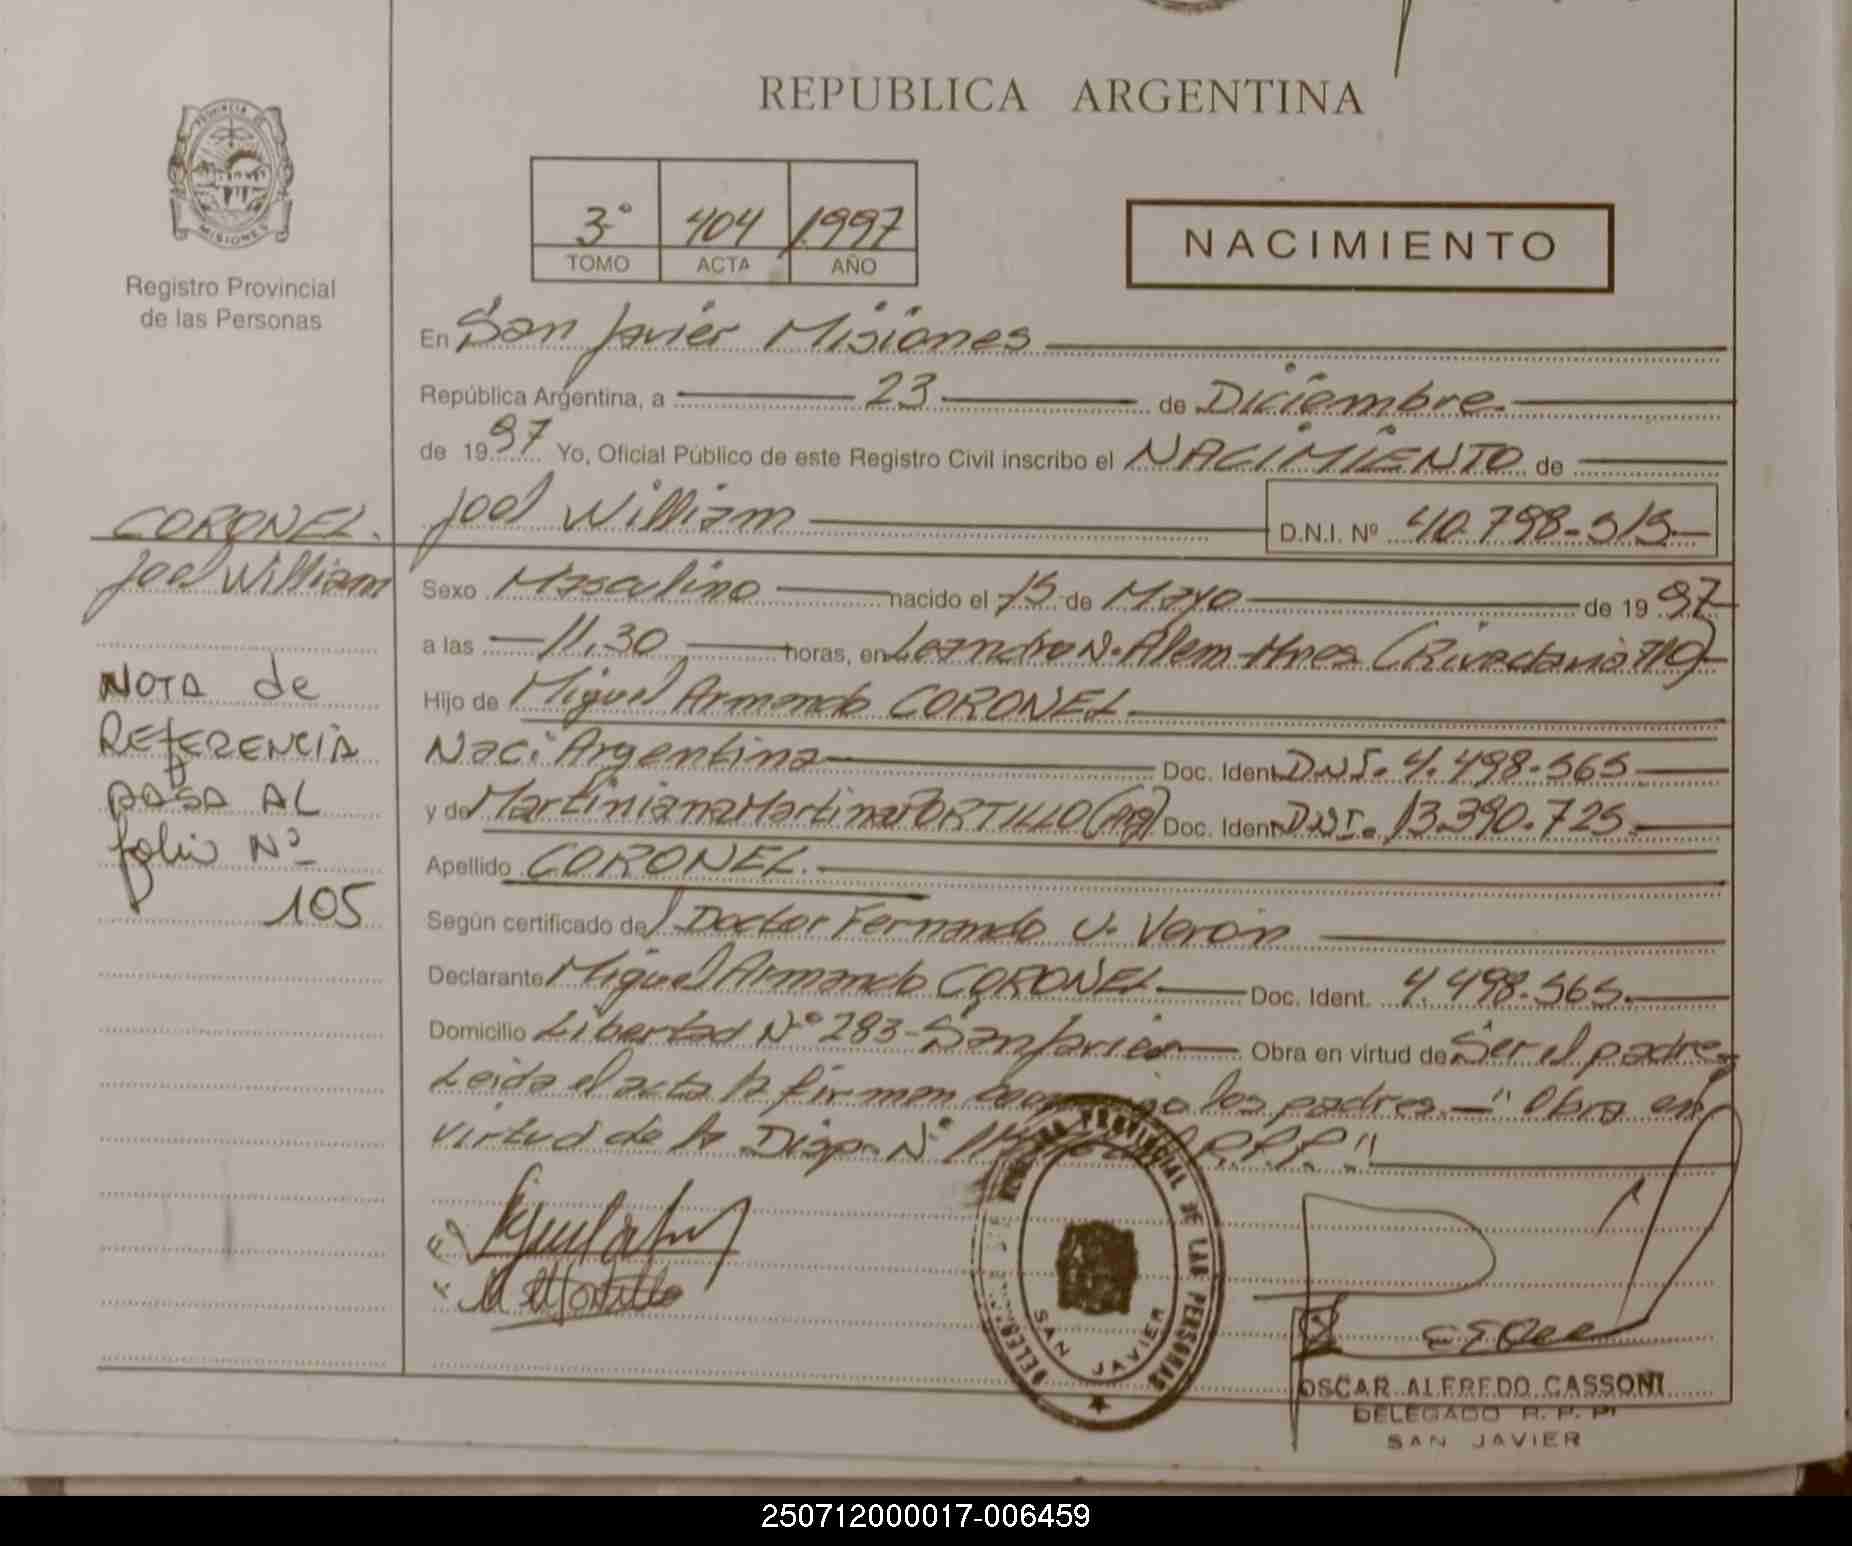 REPUBLICA ARGENTINA
PROVINCIA DE
MISIONES
Registro Provincial
de las Personas
3º 404 1.997
TOMO ACTA AÑO
NACIMIENTO
En San Javier Misiones
República Argentina, a 23 de Diciembre
de 1997 Yo, Oficial Público de este Registro Civil inscribo el NACIMIENTO de
Joel William D.N.I. Nº 40.798-515
CORONEL.
Joel William
NOTA de
REFERENCIA
PASA AL
folio Nº
105
Sexo Masculino nacido el 15 de Mayo de 1997
a las 11.30 horas, en Leandro N. Alem-Mnes (Rivadavia 710)
Hijo de Miguel Armando CORONEL
Naci: Argentina Doc. Ident. DNI. 4.498-565
y de Martiniana Martina PORTILLO (Arg) Doc. Ident. DNI. 13.390.725
Apellido CORONEL.
Según certificado del Doctor Fernando U. Verón
Declarante Miguel Armando CORONEL Doc. Ident. 4.498-565
Domicilio Libertad Nº 283-San Javier Obra en virtud de Ser el padre
Leida el acta la firman los padres.-" Obra en
virtud de la Disp. Nº R.P.P."
DELEG. REGISTRO PROVINCIAL DE LAS PERSONAS
SAN JAVIER
OSCAR ALFREDO CASSONI
DELEGADO R. P. P.
SAN JAVIER
250712000017-006459